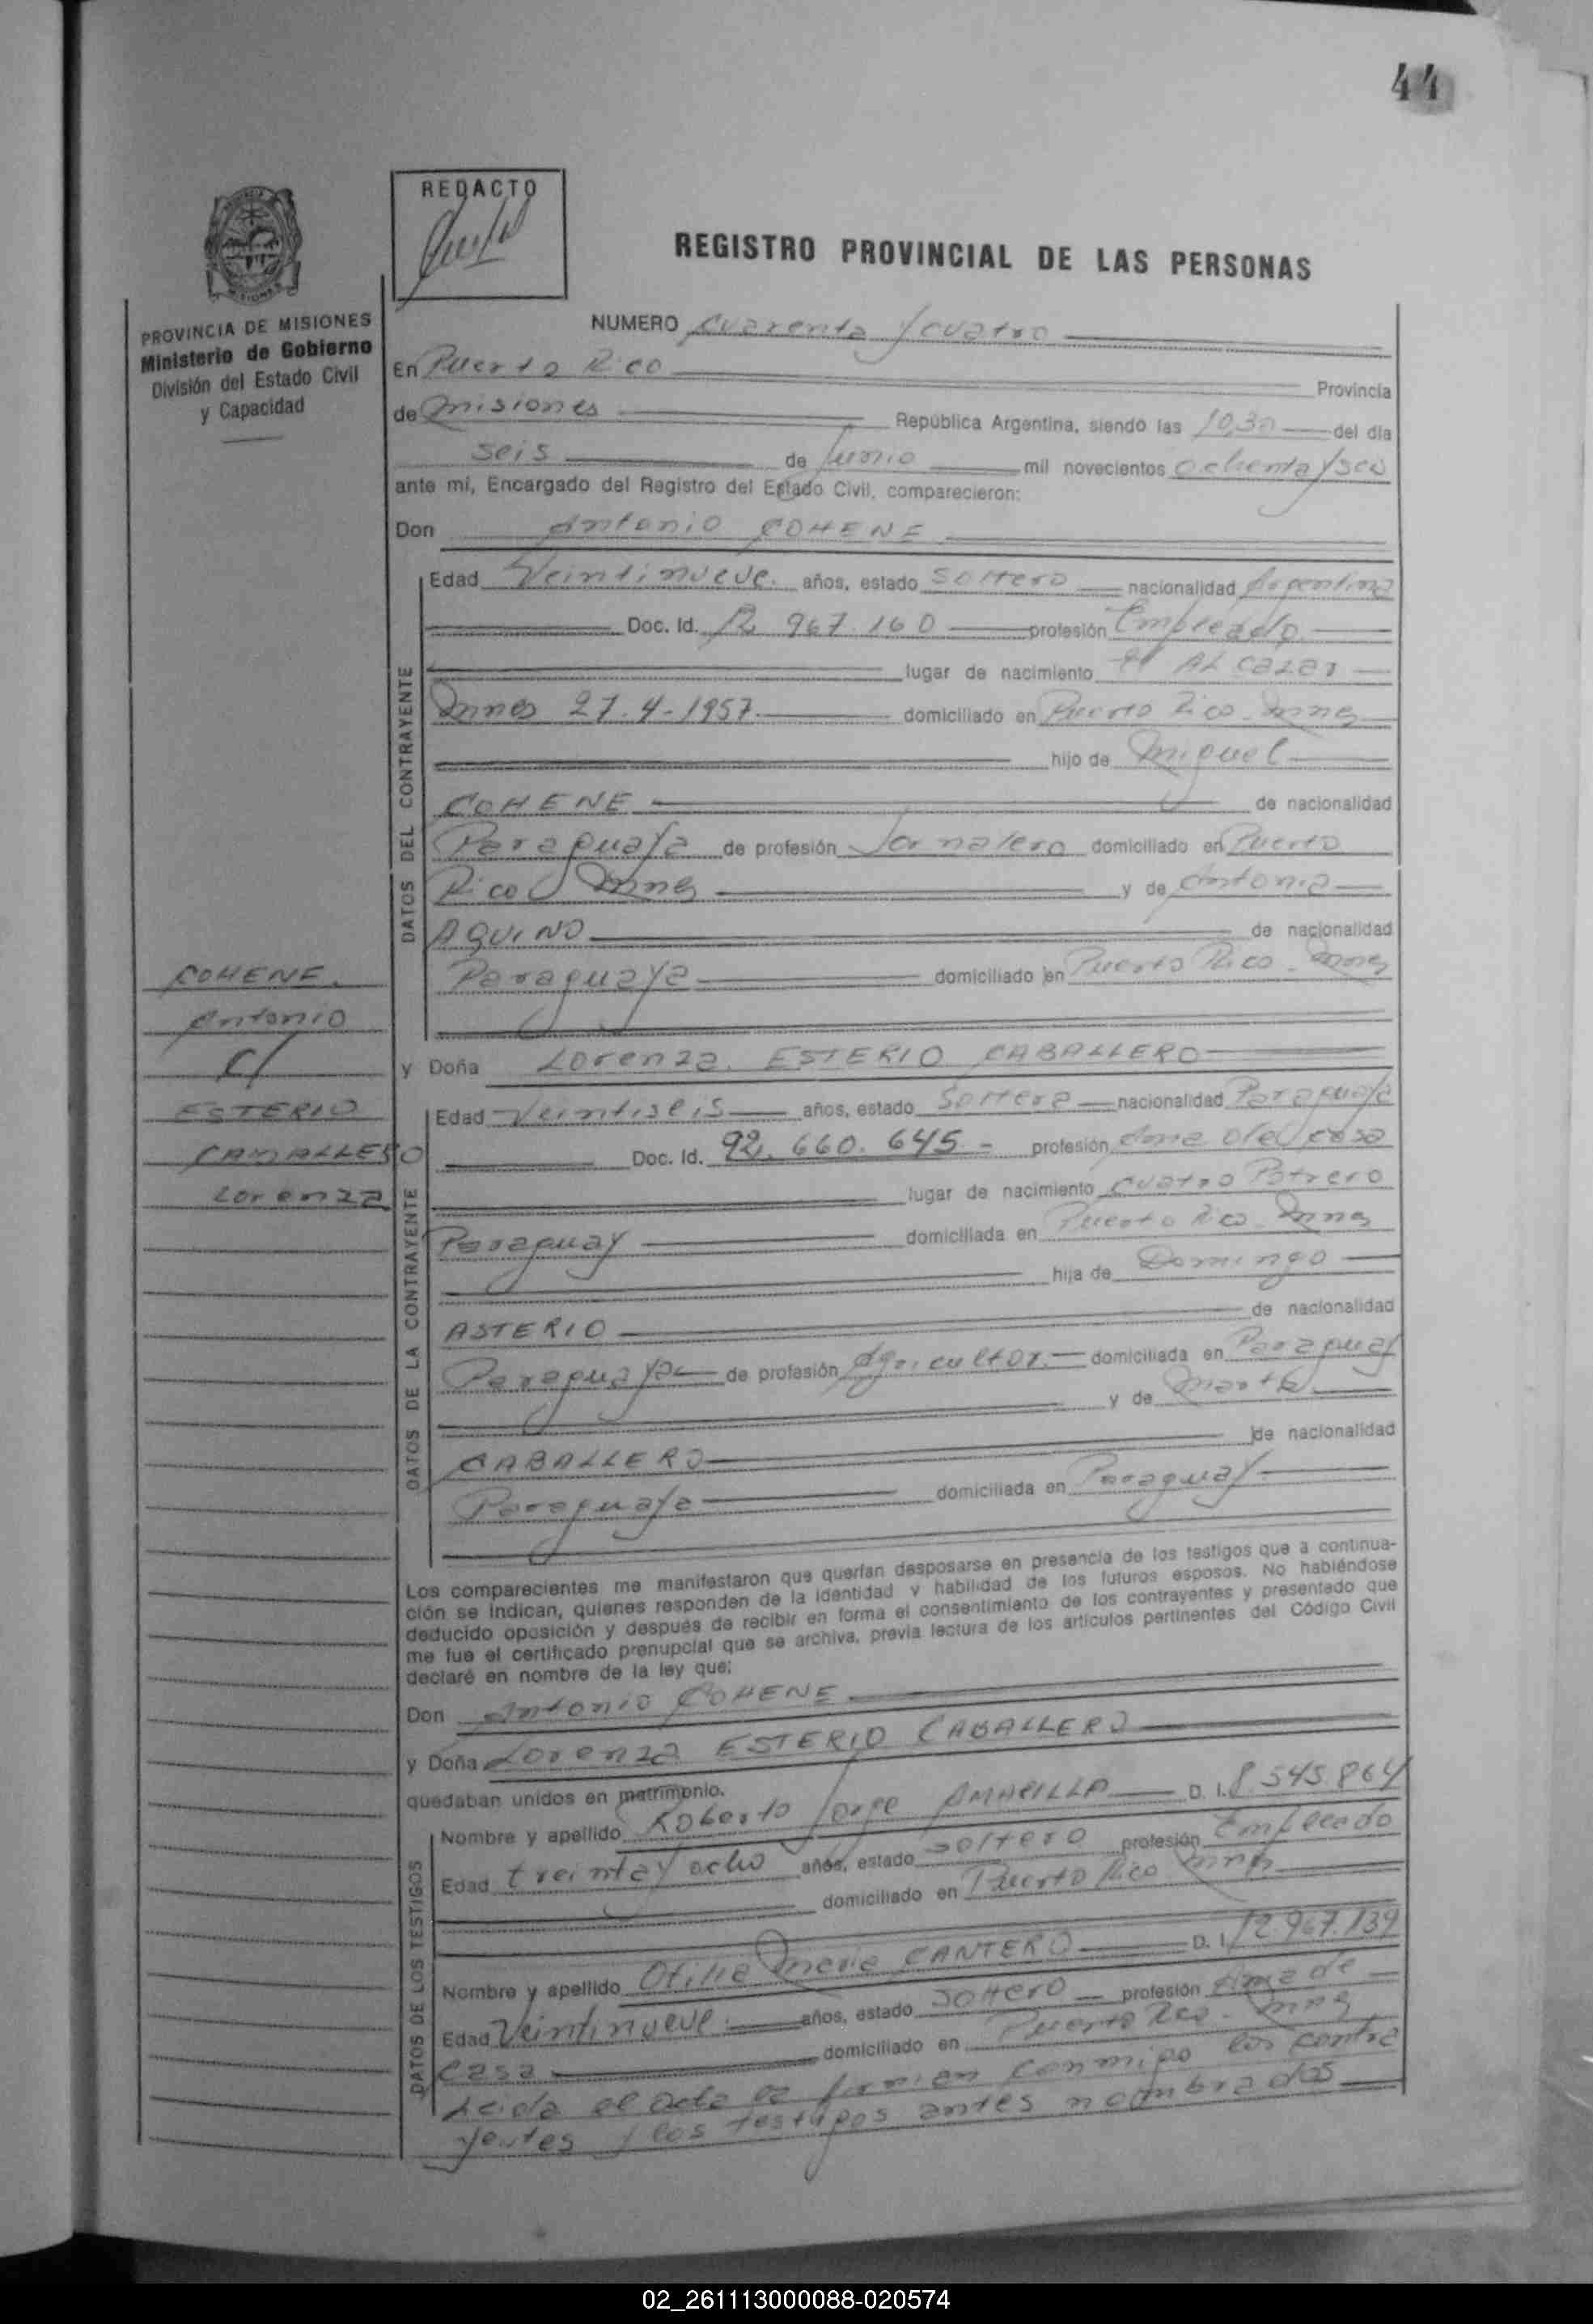 44
REDACTO
REGISTRO PROVINCIAL DE LAS PERSONAS
PROVINCIA DE MISIONES
Ministerio de Gobierno
División del Estado Civil
y Capacidad
NUMERO Cuarenta y cuatro
En Puerto Rico Provincia
de Misiones República Argentina, siendo las 10,30 del día
seis de Junio mil novecientos ochenta y seis
ante mí, Encargado del Registro del Estado Civil, comparecieron:
Don Antonio COHENE
Edad Veintinueve años, estado Soltero nacionalidad Argentina
Doc. Id. 967.160 profesión Empleado
lugar de nacimiento AL cazar
Mnes 27-4-1957 domiciliado en Puerto Rico Mnes
hijo de Miguel
COHENE de nacionalidad
Paraguaya de profesión Jornalero domiciliado en Puerto
Rico Mnes y de Antonia
AQUINO de nacionalidad
Paraguaya domiciliado en Puerto Rico Mnes
DATOS DEL CONTRAYENTE
COHENE
Antonio
c/
ESTERIO
CABALLERO
Lorenza
y Doña Lorenza ESTERIO CABALLERO
Edad Veintiseis años, estado Soltera nacionalidad Paraguaya
Doc. Id. 92.660.645.- profesión Ama de casa
lugar de nacimiento Cuatro Potrero
Paraguay domiciliada en Puerto Rico Mnes
hija de Domingo
ASTERIO de nacionalidad
Paraguaya de profesión Agricultor domiciliada en Paraguay
y de Marta
CABALLERO de nacionalidad
Paraguaya domiciliada en Paraguay
DATOS DE LA CONTRAYENTE
Los comparecientes me manifestaron que querían desposarse en presencia de los testigos que a continua-
ción se indican, quienes responden de la identidad y habilidad de los futuros esposos. No habiéndose
deducido oposición y después de recibir en forma el consentimiento de los contrayentes y presentado que
me fue el certificado prenupcial que se archiva, previa lectura de los artículos pertinentes del Código Civil
declaré en nombre de la ley que:
Don Antonio COHENE
y Doña Lorenza ESTERIO CABALLERO
quedaban unidos en matrimonio.
Nombre y apellido Roberto Jorge AMARILLA D. I. 8.545.864
Edad treinta y ocho años, estado soltero profesión Empleado
domiciliado en Puerto Rico Mnes
Nombre y apellido Otilia Maria CANTERO D. I. 12.967.139
Edad Veintinueve años, estado soltero profesión Ama de
casa domiciliado en Puerto Rico Mnes
DATOS DE LOS TESTIGOS
Leida el acta la firman conmigo los contra
yentes y los testigos antes nombrados
02_261113000088-020574